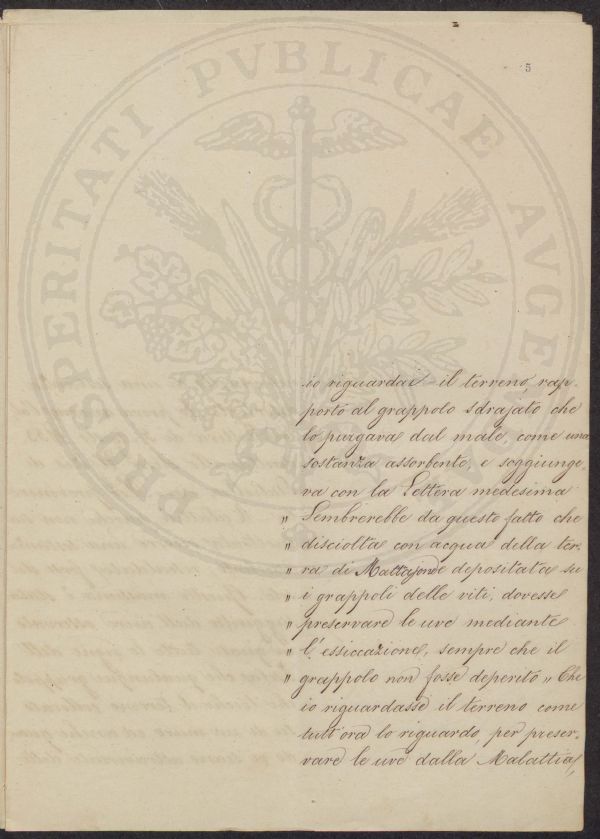 5
PROSPERITATI PVBLICAE AVGE
io riguardai il terreno rap-
portò al grappolo sdrajato che
lo purgava dal male, come una
sostanza assorbente, e soggiunge-
va con la Lettera medesima
" Sembrerebbe da questo fatto che
" disciolta con acqua della ter-
" ra di Mattajone depositata su
" i grappoli delle viti, dovesse
" preservare le uve mediante
" l'essiccazione, sempre che il
" grappolo non fosse deperito „ Che
io riguardasse il terreno come
tutt'ora lo riguardo, per preser-
vare le uve dalla Malattia,